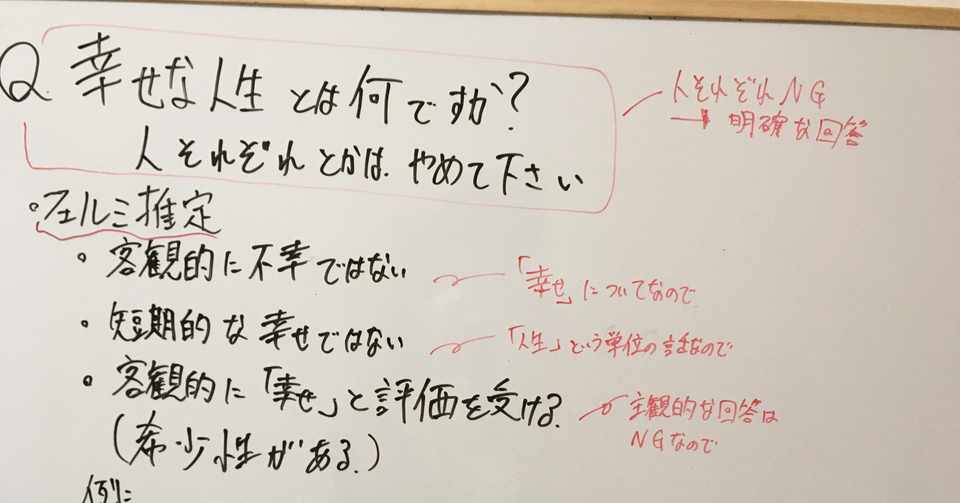 Q. 幸せな人生とは何ですか?
人それぞれとかは、やめて下さい
人それぞれNG
→ 明確な回答
・フェルミ推定
・客観的に不幸ではない
「幸せ」についてなので
・短期的な幸せではない
「人生」という単位の話なので
・客観的に「幸せ」と評価を受ける
(希少性がある。)
主観的な回答は
NGなので
例: